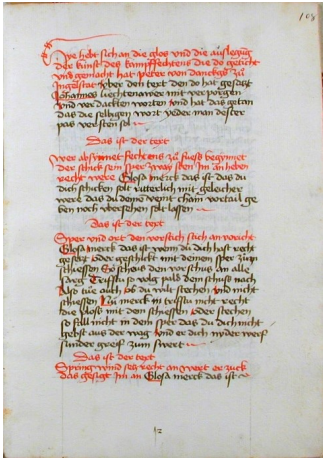 108
hye hebt sich an die glos vnd die auslegung
der kunst des kampffechtens die do geticht
vnd gemacht hat peter von danckgs zu
Ingelstat vber den text den do hat gesatzt
Johannes liechtenawer mit verporgen
vnd verdackten worten vnd hat das getan
das die selbigen wort yeder man dester
pas versten sol
Das ist der text
Wer absynnet fechtens zu fuess begynnet
der schick sein sper zway sten an heben
recht were Glosa merck das ist das du
dich schicken solt ritterlich mit geleicher
were das du deinem veint chain vortail ge
ben noch vbersehen solt lassen
Das ist der text
Sper vnd ort den vorstich stich an voricht
Glosa merck das ist wenn du dich hast recht
gesetzt oder geschickt mit deinem sper zum
schiessen So scheus den vorschus an alle
sarg Triffstu so volg pald dem schuss nach
Also tue auch ob du wilt stechen vnd nicht
schiessen Nu merck in triffstu nicht recht
die plöss mit den schiessen oder stechen
so fall nicht in dem sper das du dich nicht
gebst aus der wag vnd er dich nider werf
sunder greif zum swert
Das ist der text
Spring wind setz recht an wert er zuck
das gesigt im an Glosa merck das ist